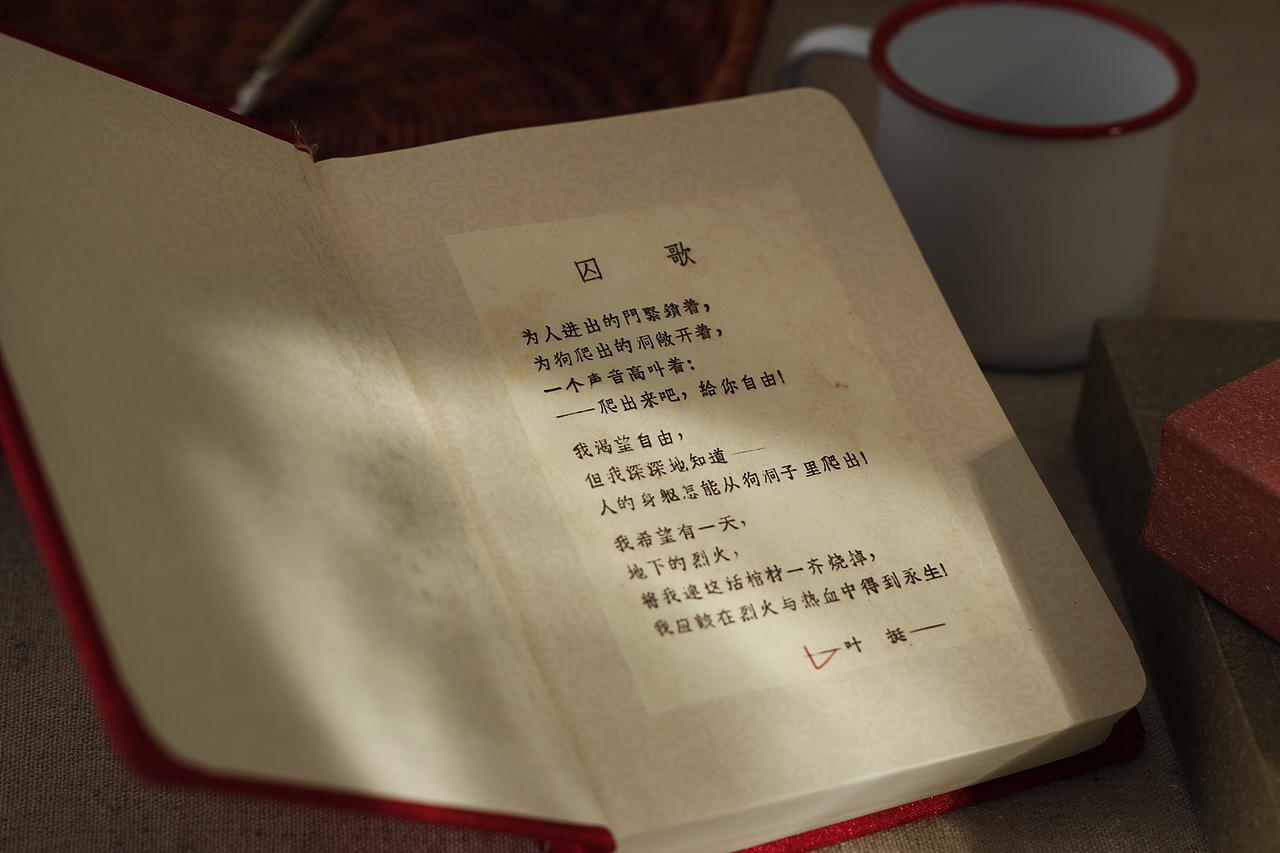 囚 歌
为人进出的門緊鎖着，
为狗爬出的洞敞开着，
一个声音高叫着：
——爬出来吧，給你自由！
我渴望自由，
但我深深地知道——
人的身躯怎能从狗洞子里爬出！
我希望有一天，
地下的烈火，
将我連这活棺材一齐烧掉，
我应該在烈火与热血中得到永生！
—叶 挺—